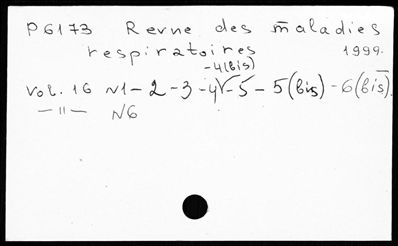 P6173 Revue des maladies
respiratoires 1999.
-4(bis)
Vol. 16 N1-2-3-4-5-5(bis)-6(bis).
-"- N6